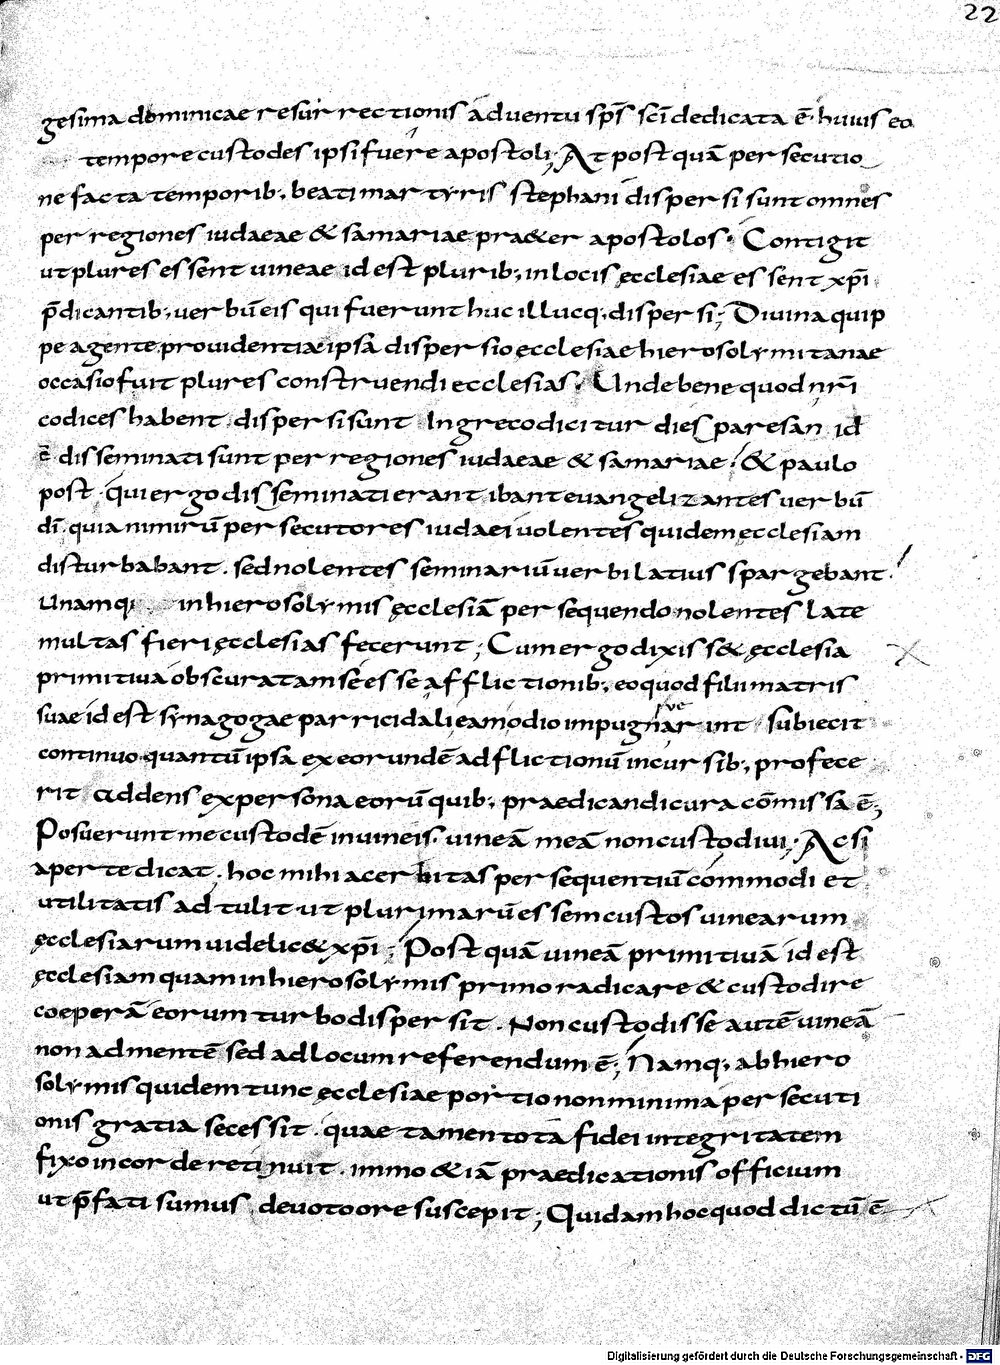 22
gesima dominicae resurrectionis aduentu sp̄s sc̄i dedicata ē· huius eo
tempore custodes ipsi fuere apostoli; At postquā persecutio
ne facta temporib; beati martyris stephani dispersi sunt omnes
per regiones iudaeae & samariae praeter apostolos· Contigit
ut plures essent uineae id est plurib; in locis ęcclesiae essent xp̄i
p̄dicantib; uerbū eis qui fuerunt huc illucq; dispersi; Diuina quip
pe agente prouidentia ipsa dispersio ęcclesiae hierosolymitanae
occasio fuit plures construendi ecclesias. Unde bene quod nr̄i
codices habent dispersi sunt In greco dicitur diesparesan id
ē disseminati sunt per regiones iudaeae & samariae· & paulo
post qui ergo disseminati erant ibant euangelizantes uerbū
dī· quia nimirū persecutores iudaei uolentes quidem ecclesiam
disturbabant. sed nolentes seminariū uerbi latius spargebant·
Unamq; in hierosolymis ęcclesiā persequendo nolentes late
multas fieri ęcclesias fecerunt; Cum ergo dixiss& ęcclesia
primitiua obscuratam sé esse afflictionib; eo quod filii matris
suae id est synagogae parricidali eam odio impugnarint subiecit
continuo quantū ipsa ex eorundē adflictionū incursib; profece
rit addens ex persona eorū quib; praedicandi cura cōmissa ē;
Posuerunt me custodē in uineis· uineā meā non custodiui; Ac si
aperte dicat. hoc mihi acerbitas persequentiū commodi et
utilitatis adtulit ut plurimarū essem custos uinearum
ęcclesiarum uidelic& xp̄i; Postquā uineā primitiuā id est
ęcclesiam quam in hierosolymis primo radicare & custodire
coeperā eorum turbo dispersit. Non custodisse autē uineā
non ad mentē sed ad locum referendum ē; Namq; ab hiero
solymis quidem tunc ęcclesiae portio non minima persecuti
onis gratia secessit. quae tamen totā fidei integritatem
fixo in corde retinuit. immo & iā praedicationis officium
ut p̄fati sumus deuoto ore suscepit; Quidam hoc quod dictū ē
Digitalisierung gefördert durch die Deutsche Forschungsgemeinschaft - DFG